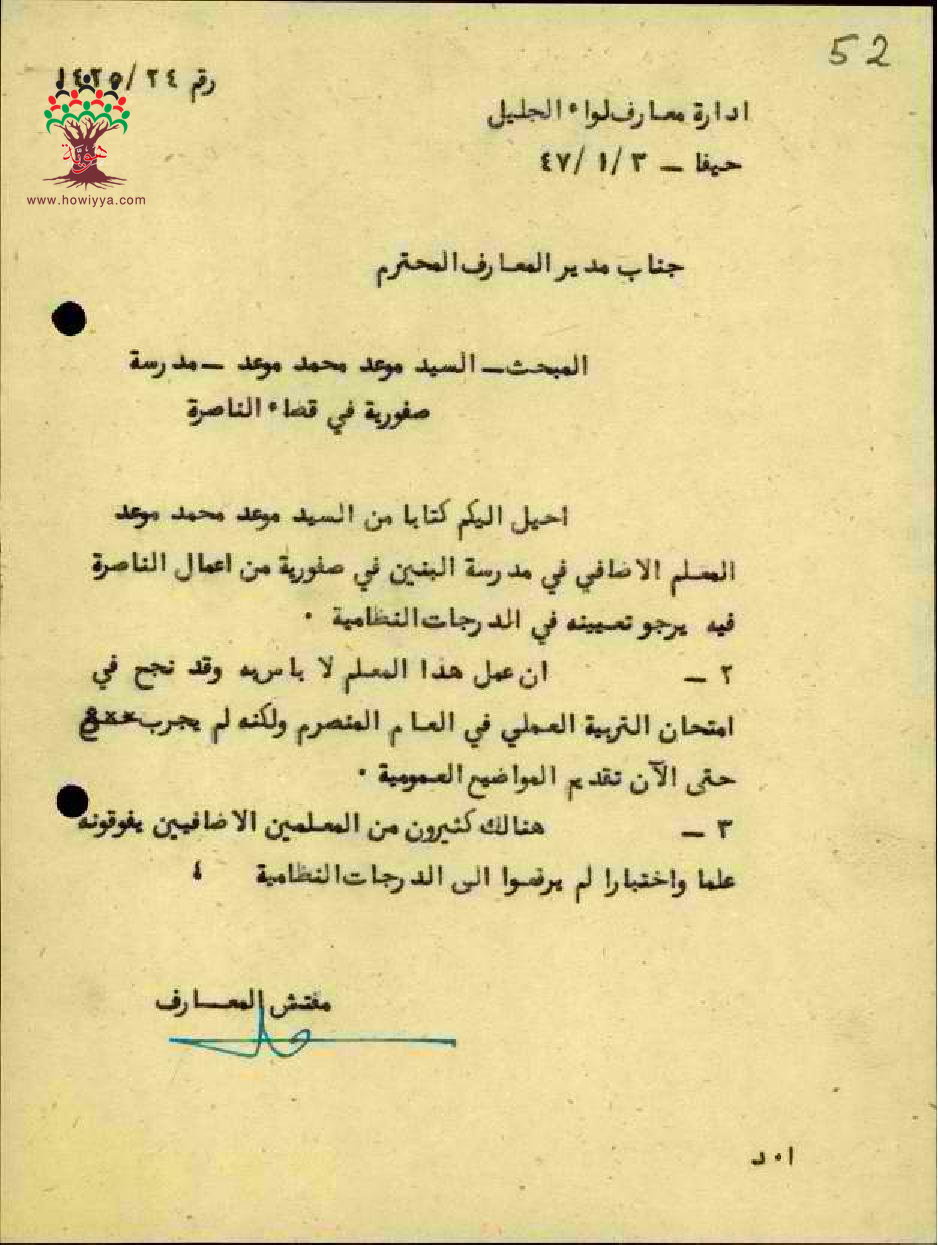 52
رقم ٢٤/
ادارة معارف لواء الجليل
حيفا – ٣/ ١/ ٤٧
www.howiyya.com
جناب مدير المعارف المحترم
المبحث – السيد موعد محمد موعد – مدرسة
صفورية في قضاء الناصرة
احيل اليكم كتابا من السيد موعد محمد موعد
المعلم الاضافي في مدرسة البنين في صفورية من اعمال الناصرة
فيه يرجو تعيينه في الدرجات النظامية ٠
٢ – ان عمل هذا المعلم لا باس به وقد نجح في
امتحان التربية العملي في العام المنصرم ولكنه لم يجرب
حتى الآن تقديم المواضيع العمومية ٠
٣ – هنالك كثيرون من المعلمين الاضافيين يفوقونه
علما واختبارا لم يرفعوا الى الدرجات النظامية ٤
مفتش المعارف
ا ٠ د